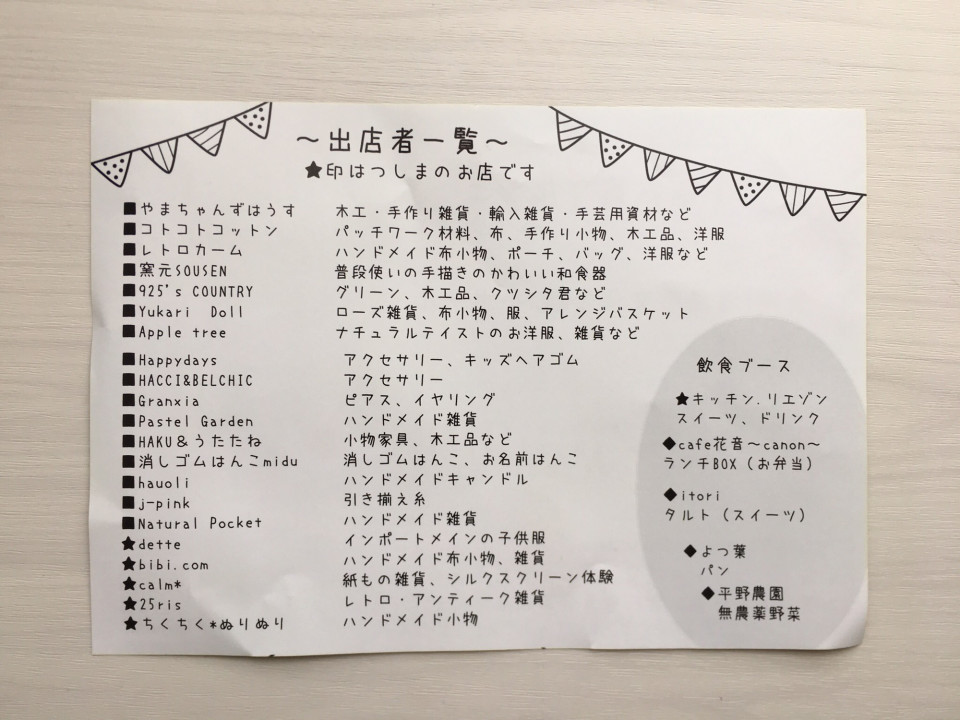 ～出店者一覧～
★印はつしまのお店です
■やまちゃんずはうす 木工・手作り雑貨・輸入雑貨・手芸用資材など
■コトコトコットン パッチワーク材料、布、手作り小物、木工品、洋服
■レトロカーム ハンドメイド布小物、ポーチ、バッグ、洋服など
■窯元SOUSEN 普段使いの手描きのかわいい和食器
■925's COUNTRY グリーン、木工品、クツシタ君など
■Yukari Doll ローズ雑貨、布小物、服、アレンジバスケット
■Apple tree ナチュラルテイストのお洋服、雑貨など
■Happydays アクセサリー、キッズヘアゴム
■HACCI&BELCHIC アクセサリー
■Granxia ピアス、イヤリング
■Pastel Garden ハンドメイド雑貨
■HAKU＆うたたね 小物家具、木工品など
■消しゴムはんこmidu 消しゴムはんこ、お名前はんこ
■hauoli ハンドメイドキャンドル
■j-pink 引き揃え糸
■Natural Pocket ハンドメイド雑貨
★dette インポートメインの子供服
★bibi.com ハンドメイド布小物、雑貨
★calm* 紙もの雑貨、シルクスクリーン体験
★25ris レトロ・アンティーク雑貨
★ちくちく*ぬりぬり ハンドメイド小物
飲食ブース
★キッチン.リエゾン
スイーツ、ドリンク
◆cafe花音～canon～
ランチBOX（お弁当）
◆itori
タルト（スイーツ）
◆よつ葉
パン
◆平野農園
無農薬野菜